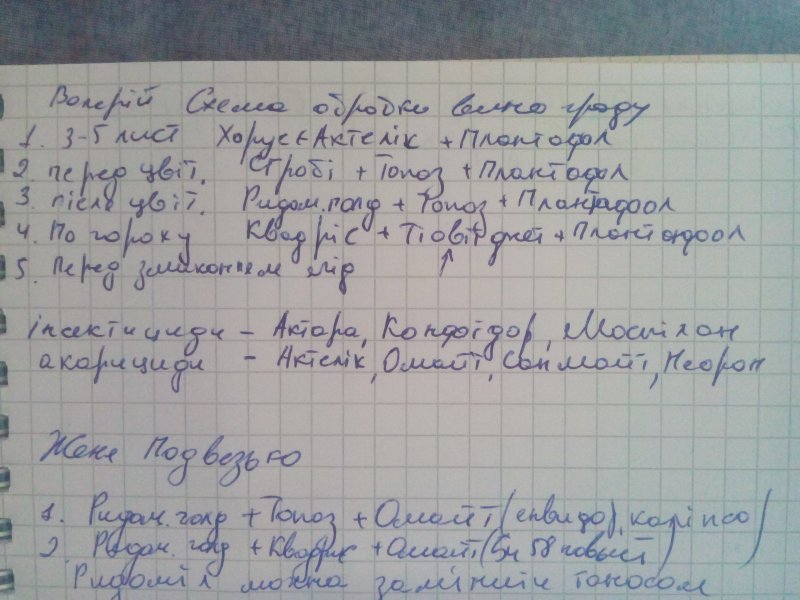 Валерій Схема обробки винограду
1. 3-5 лист Хорус + Актелік + Плантафол
2. перед цвіт. Стробі + Топаз + Плантафол
3. після цвіт. Ридом. голд + Топаз + Плантафол
4. По гороху Квадріс + Тіовіт джет + Плантафол
5. Перед змиканням ягід
інсектициди - Актара, Конфідор, Моспілан
акарициди - Актелік, Омайт, Санмайт, Неорон
Жене Подвезько
1. Ридом. голд + Топаз + Омайт (енвидор, каліпсо)
2. Ридом. голд + Квадріс + Омайт (Би 58 новый)
Ридоміл можна замінити таносом